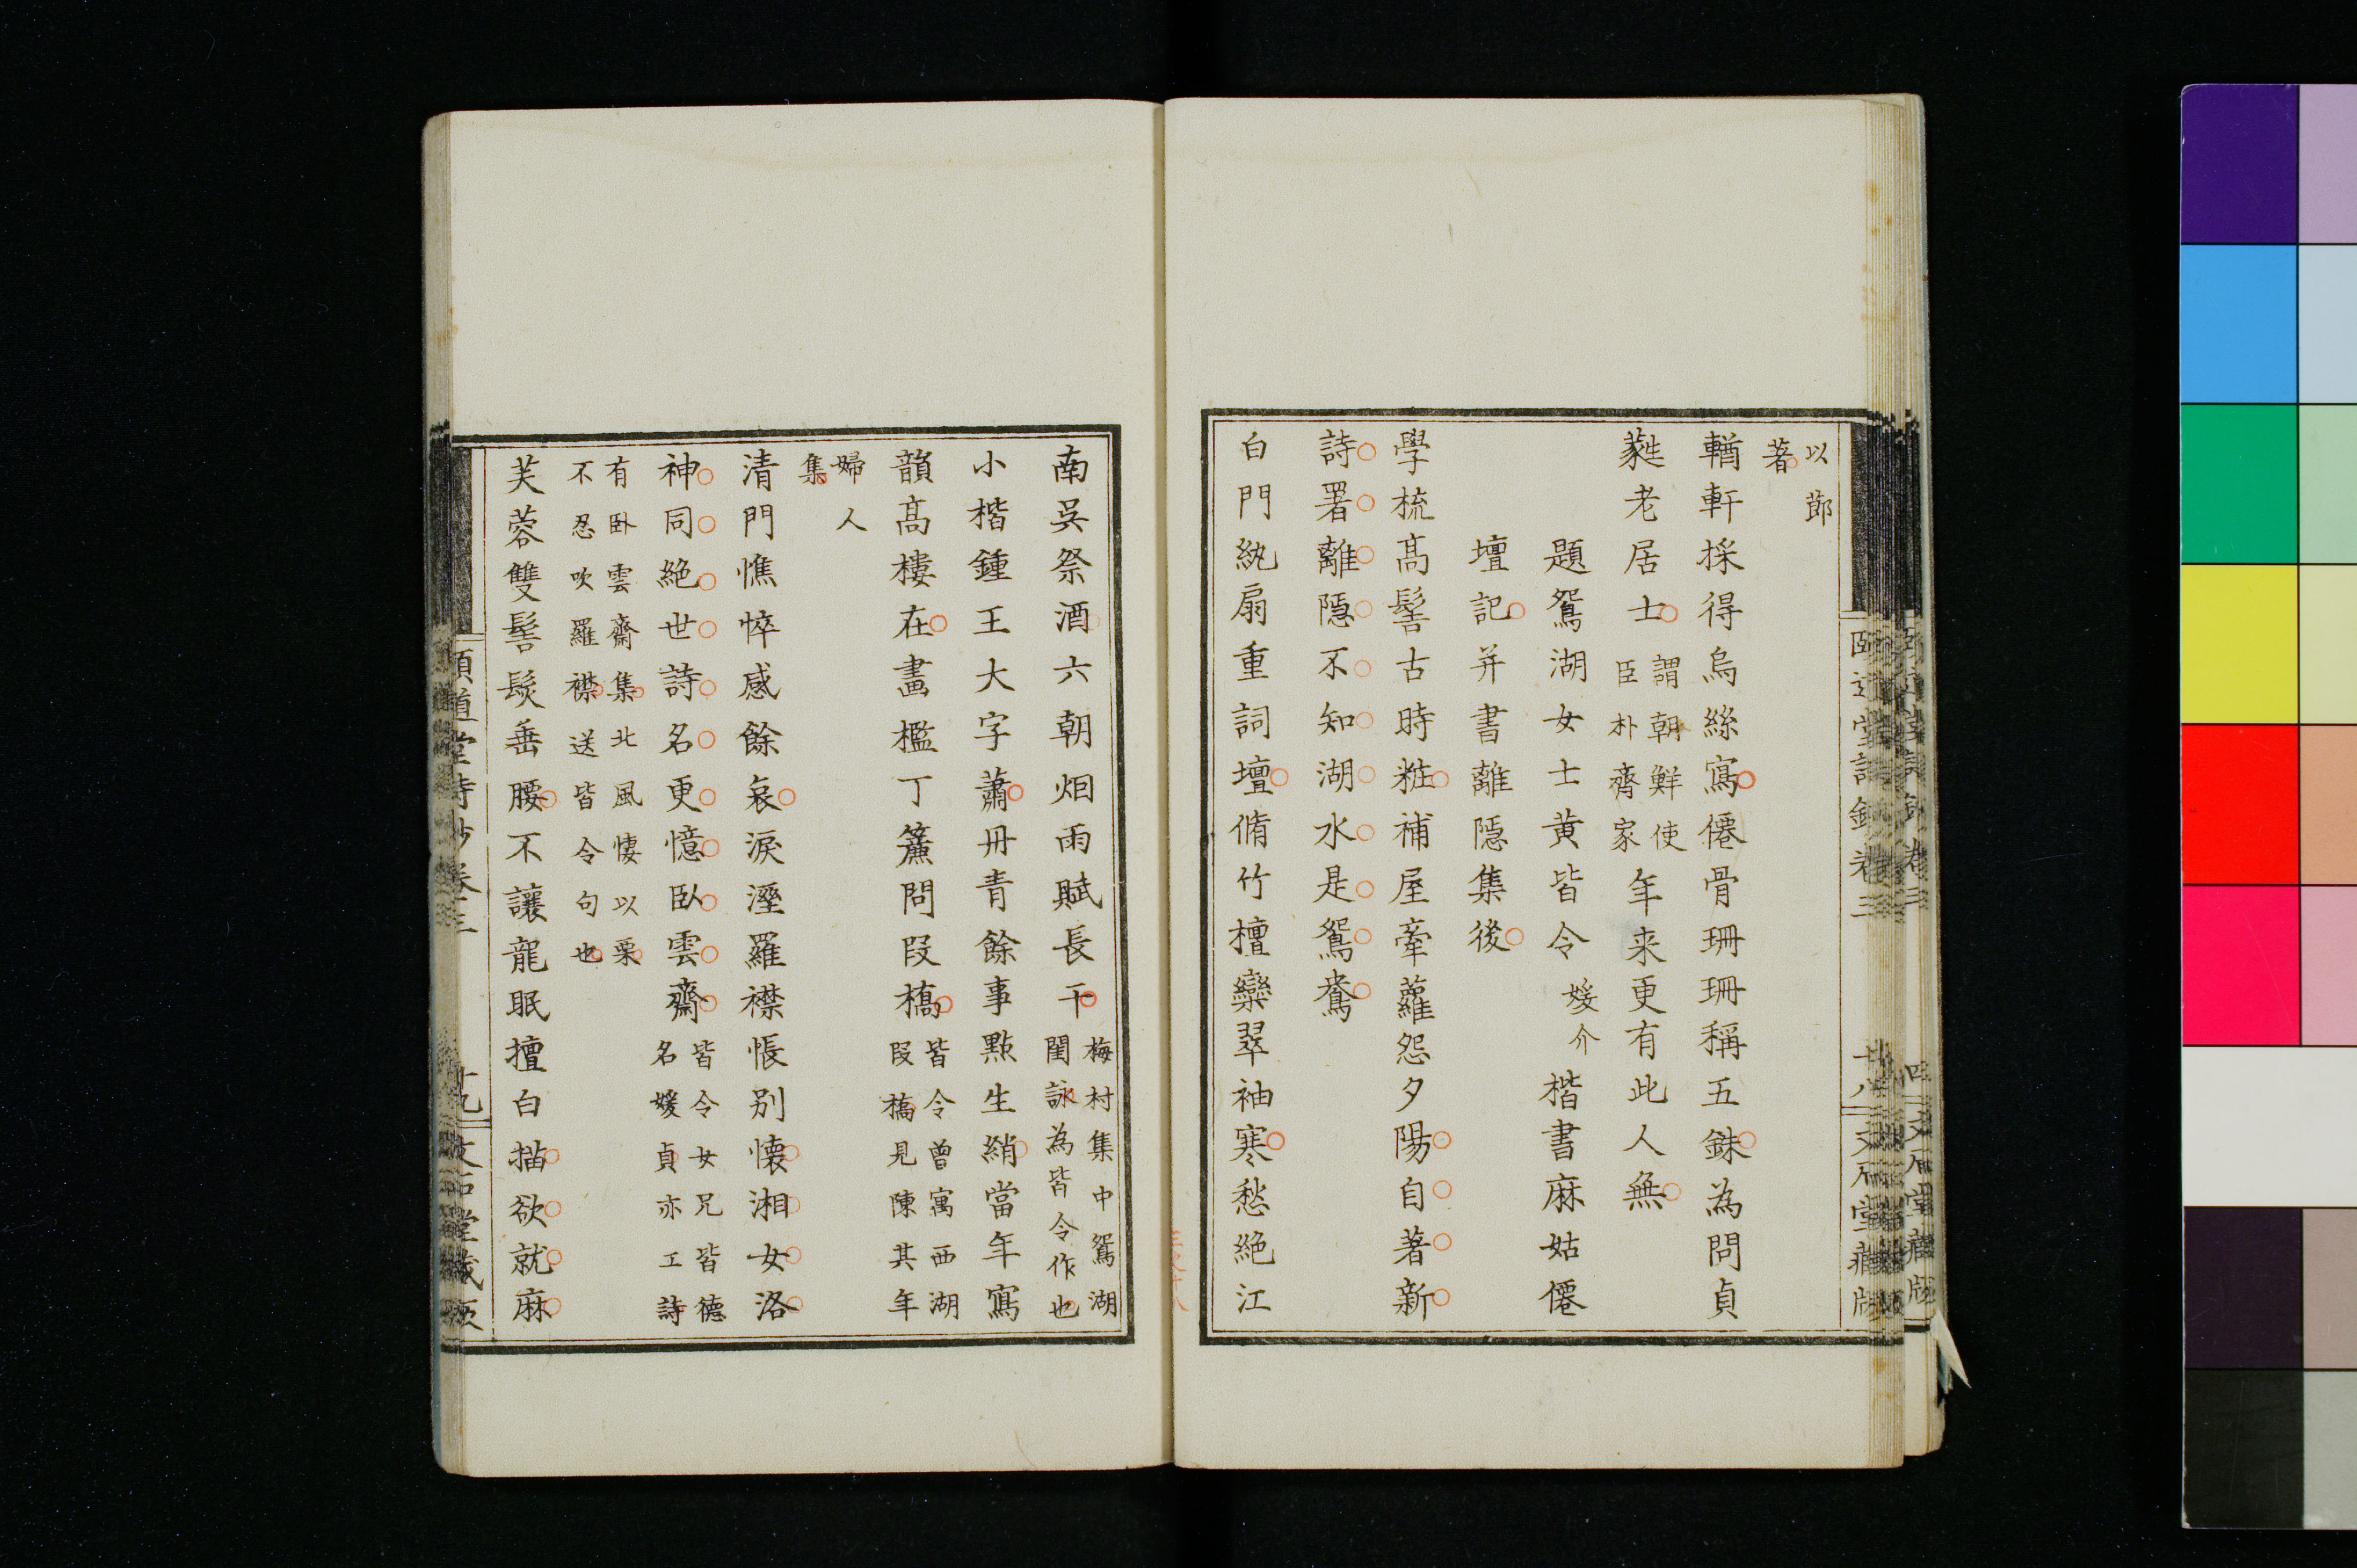 以莭
著
輶軒採得烏絲寫僊骨珊珊稱五銖為問貞
蕤老居士謂朝鮮使臣朴齊家年来更有此人無
題鴛湖女士黄皆令媛介楷書麻姑僊
壇記并書離隱集後
學梳髙髻古時粧補屋牽蘿怨夕陽自著新
詩署離隱不知湖水是鴛鴦
白門紈扇重詞壇脩竹檀欒翠袖寒愁絶江
十八
南吳祭酒六朝烟雨賦長干梅村集中鴛湖閨詠為皆令作也
小楷鍾王大字蕭丹青餘事點生綃當年寫
韻髙樓在畫檻丁簾問段橋皆令曾寓西湖段橋見陳其年
婦人
集
清門憔悴感餘哀淚溼羅襟悵别懐湘女洛
神同絶世詩名更憶臥雲齋皆令女兄皆德名媛貞亦工詩
有臥雲齋集北風悽以栗
不忍吹羅襟送皆令句也
芙蓉雙髻髮垂腰不讓龍眠擅白描欲就麻
頤道堂詩鈔卷三
十九